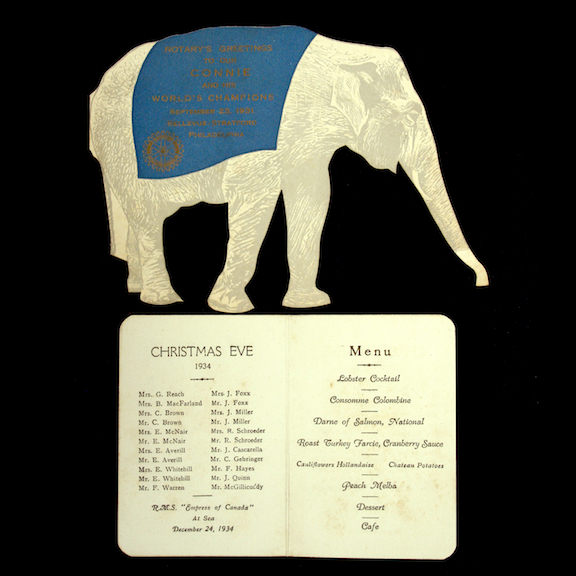 ROTARY'S GREETINGS
TO OUR
CONNIE
AND HIS
WORLD'S CHAMPIONS
SEPTEMBER 23, 1931
BELLEVUE STRATFORD
PHILADELPHIA
CHRISTMAS EVE
1934
Mrs. G. Reach
Mrs. B. MacFarland
Mrs. C. Brown
Mr. C. Brown
Mrs. E. McNair
Mr. E. McNair
Mrs. E. Averill
Mr. E. Averill
Mrs. E. Whitehill
Mr. E. Whitehill
Mr. F. Warren
Mrs J. Foxx
Mr. J. Foxx
Mrs. J. Miller
Mr. J. Miller
Mrs. R. Schroeder
Mr. R. Schroeder
Mr. J. Cascarella
Mr. C. Gehringer
Mr. F. Hayes
Mr. J. Quinn
Mr. McGillicuddy
R.M.S. "Empress of Canada"
At Sea
December 24, 1934
Menu
Lobster Cocktail
Consomme Colombine
Darne of Salmon, National
Roast Turkey Farcie, Cranberry Sauce
Cauliflowers Hollandaise Chateau Potatoes
Peach Melba
Dessert
Cafe